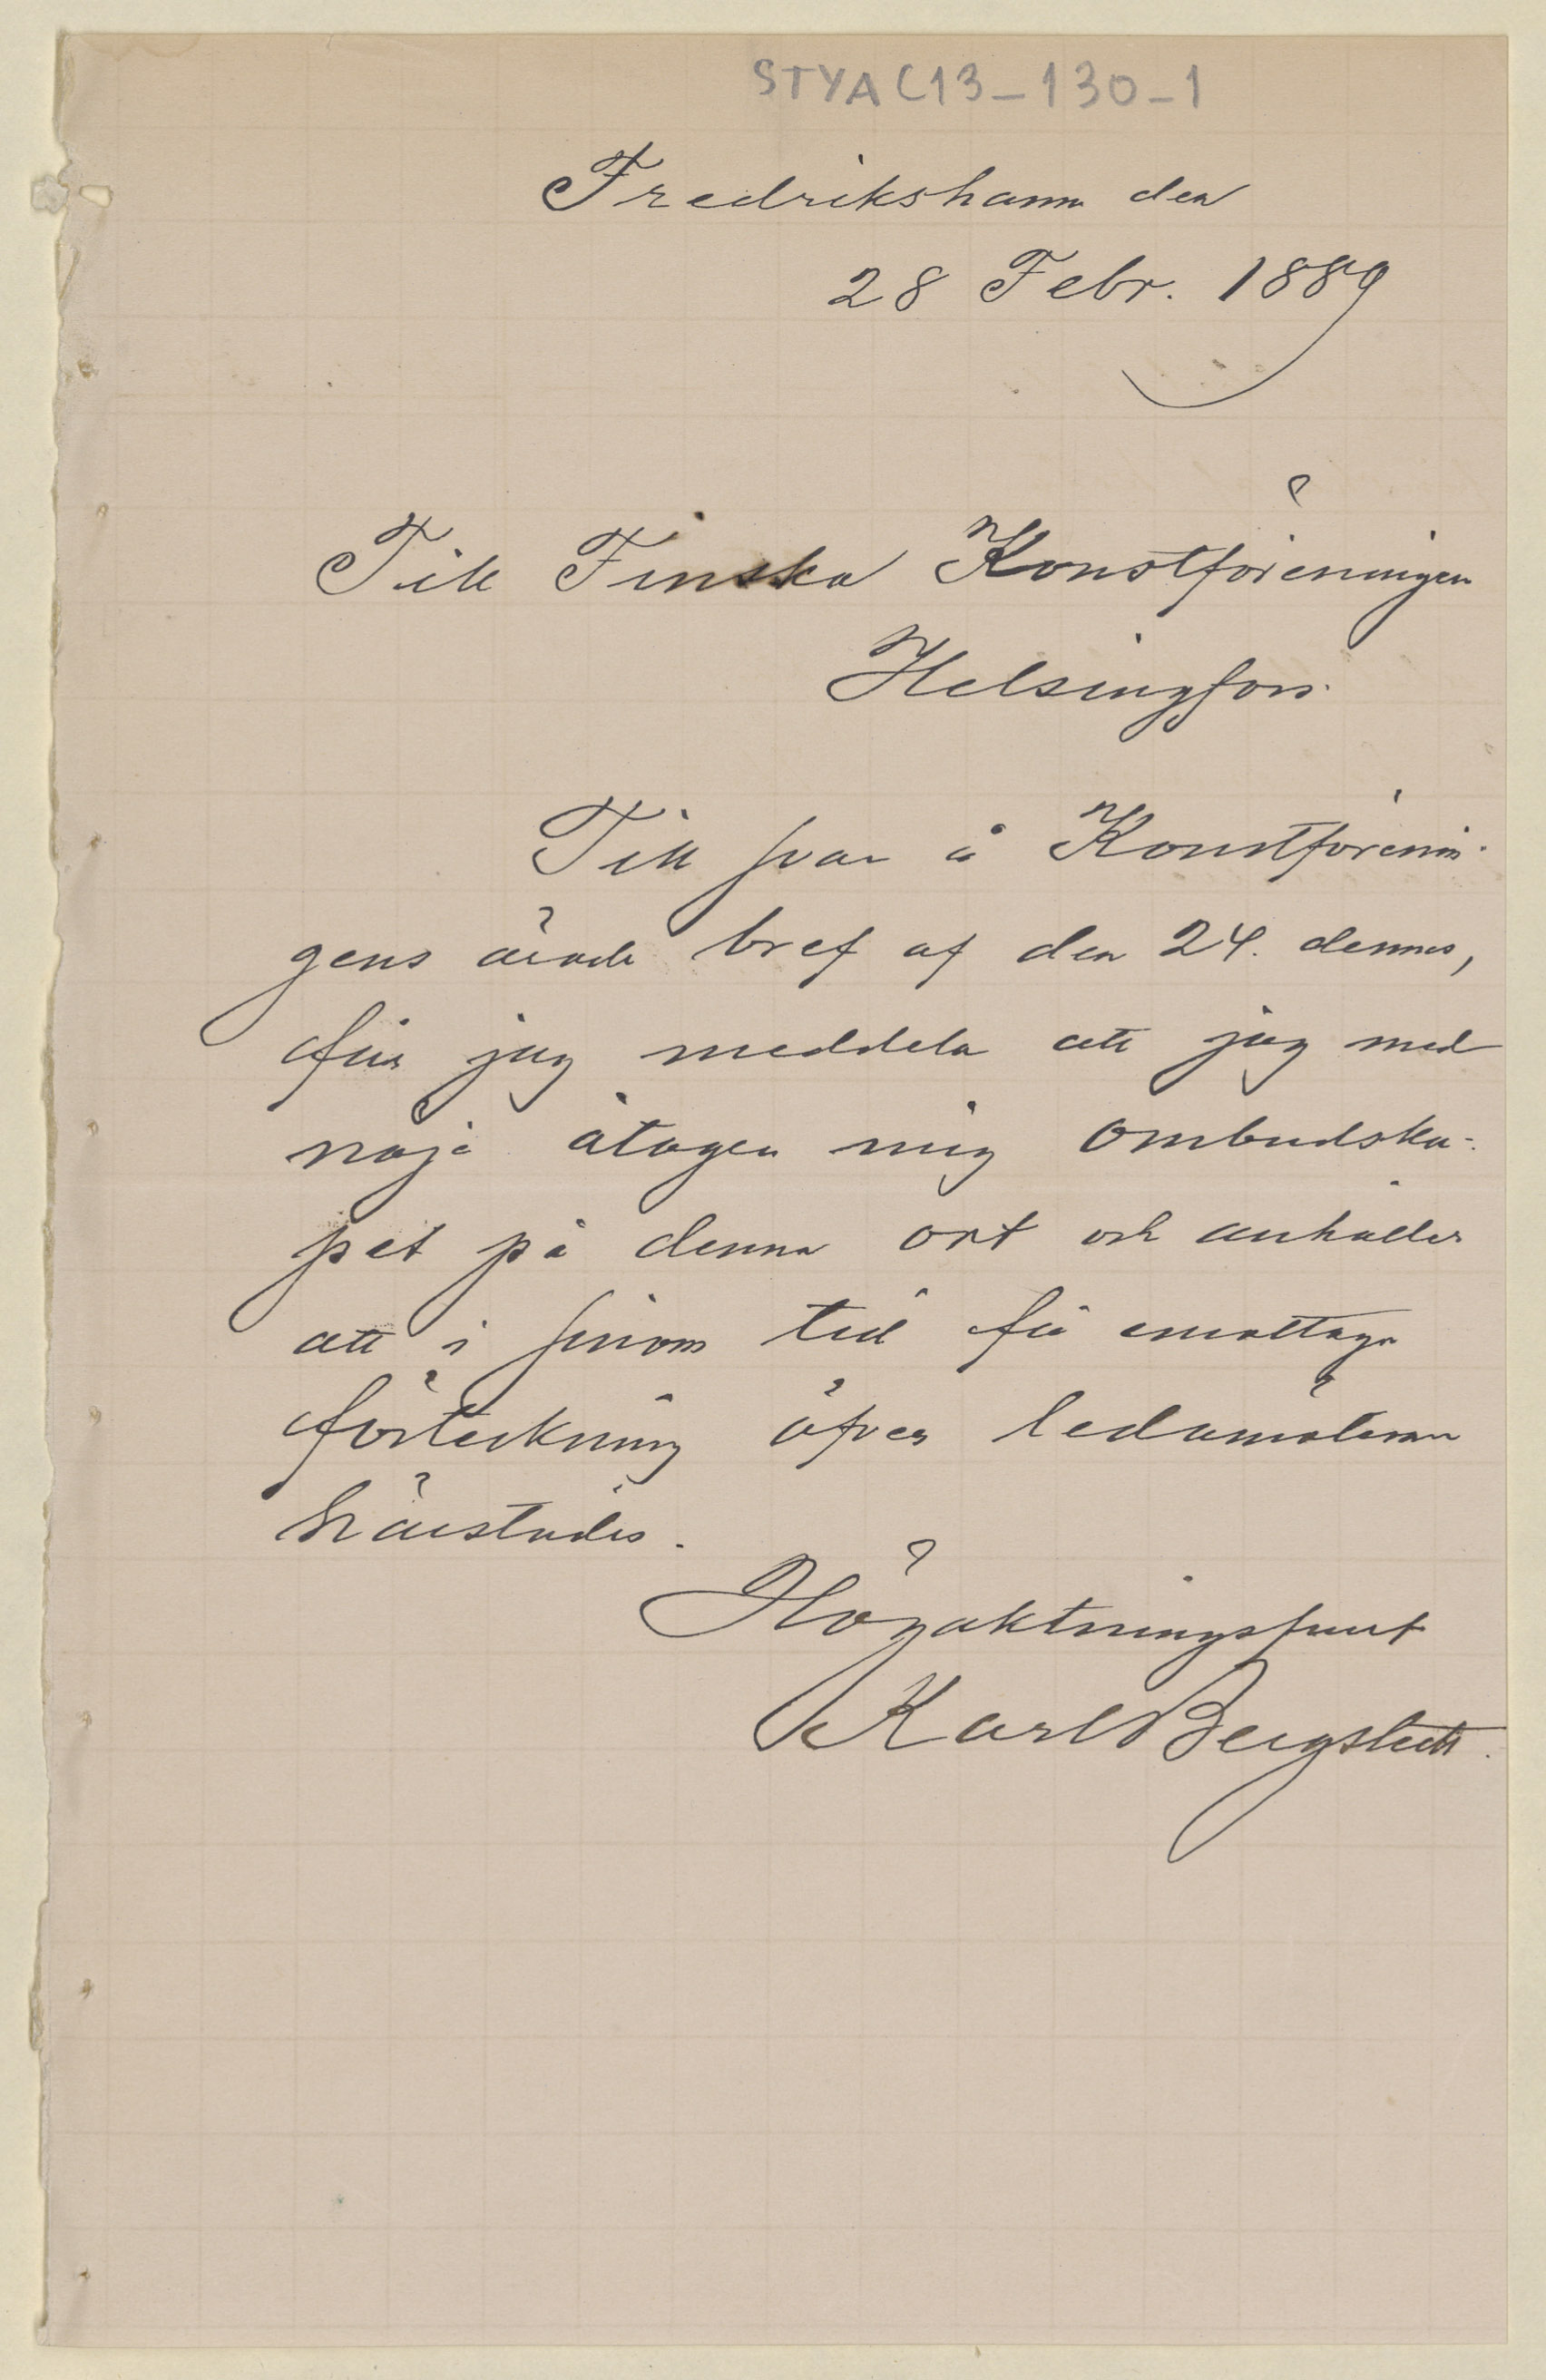 STYA C13-130-1
Fredrikshamn den
28 Febr. 1889
Till Finska Konstföreningen
Helsingfors.
Till svar å Konstförenin-
gens ärade bref af den 24. dennes,
får jag meddela att jag med
nöje åtager mig ombudska-
pet på denna ort och anhåller
att i sinom tid få emottaga
förteckning öfver ledamöterna
härstädes.
Högaktningsfullt
Karl Bergstedt.